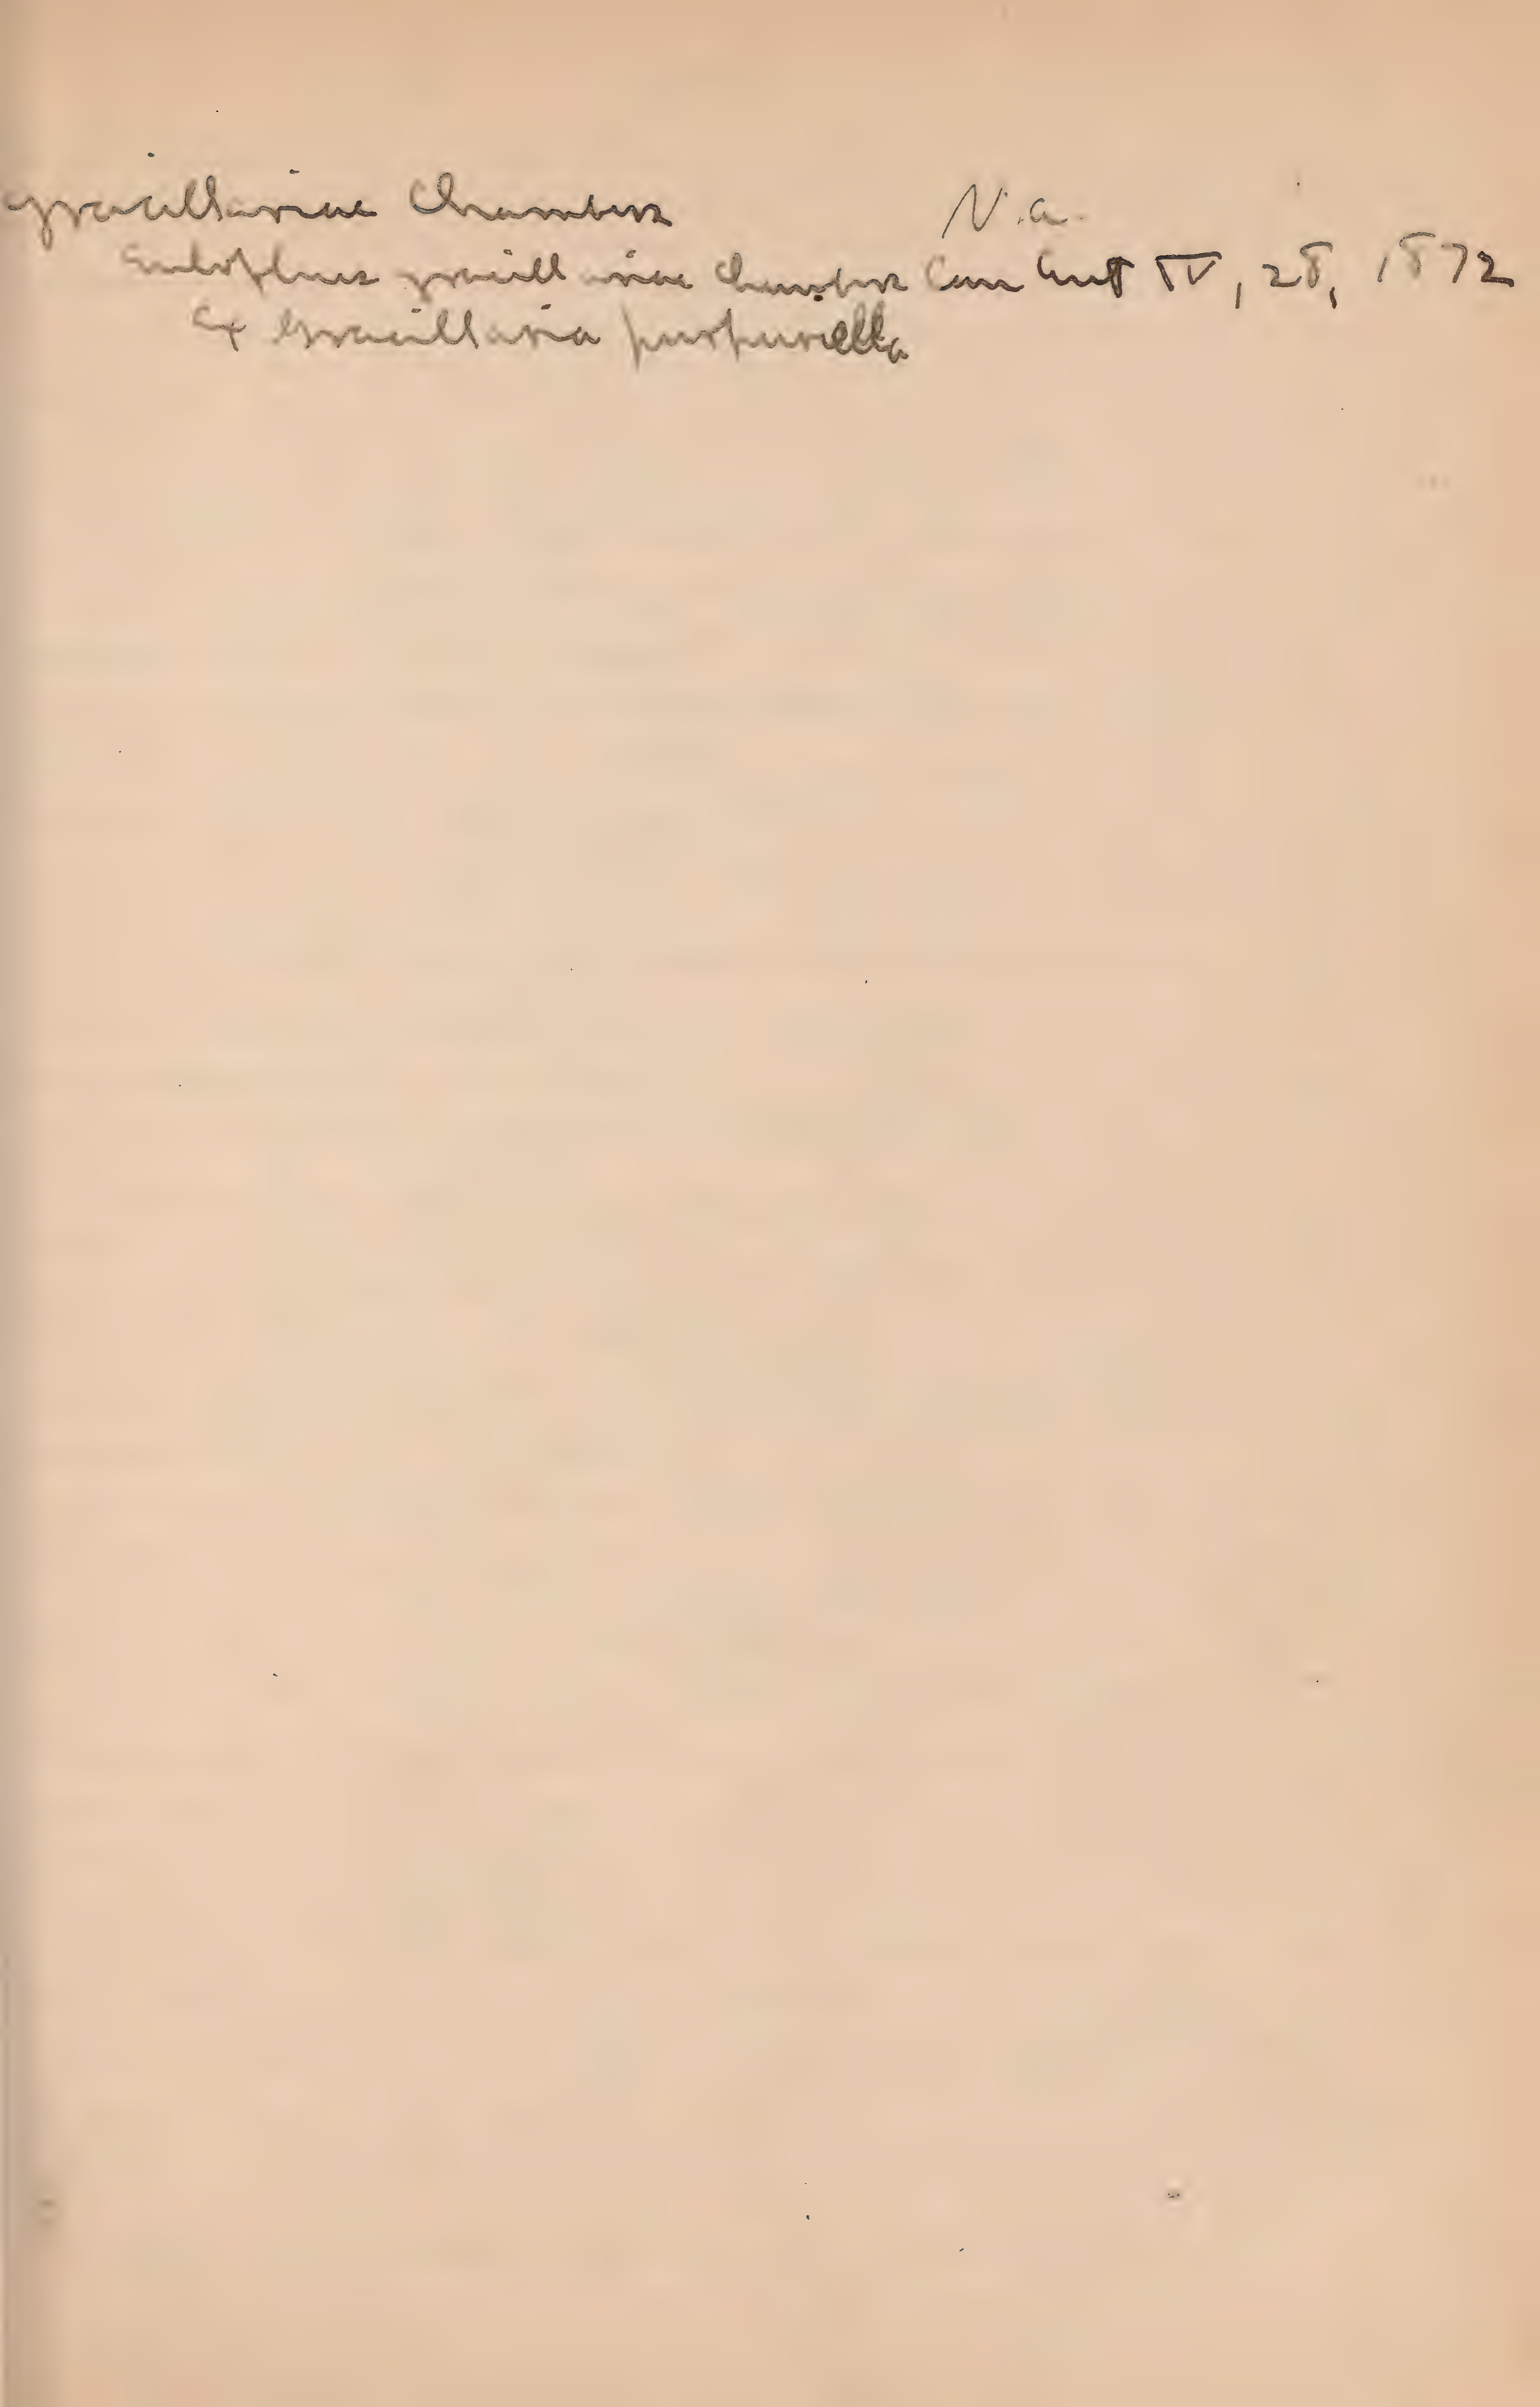 gracillariae Chambers N.a.
Eulophus gracillariae Chambers Can Ent IV, 28, 1872
Ex Gracillaria purpuriella